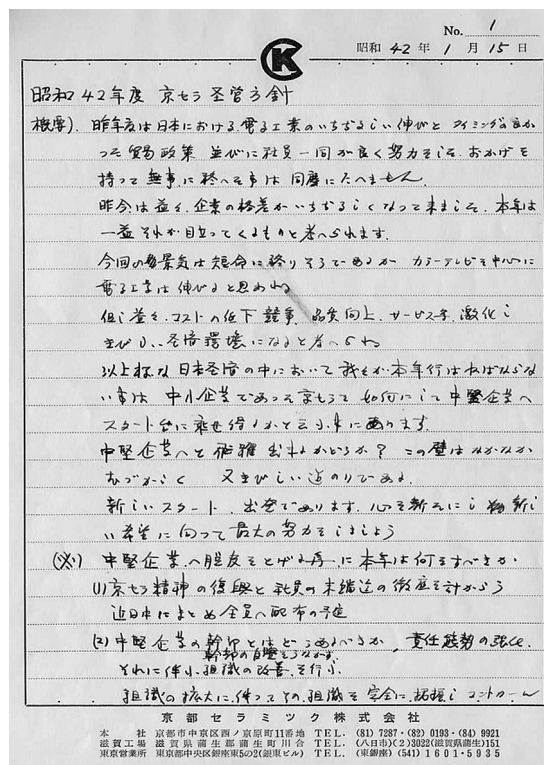 No. 1
昭和 42 年 1 月 15 日
CK
昭和42年度 京セラ経営方針
概要). 昨年度は日本における電子工業のいちぢるしい伸びと タイミングのよか
った貿易政策 並びに社員一同が良く努力をした. おかげを
持って 無事に終へた事は 同慶にたへません.
昨今は益々. 企業の格差がいちぢるしくなって来ました. 本年は
一益それが目立ってくるものと考へられます.
今回の好景気は短命に終りそうであるが カラーテレビを中心に
電子工業は伸びると思われる
但し益々. コストの低下競争. 品質向上. サービス等. 激化し
きびしい経営環境になると考へられ
以上様な日本経営の中において 我々が本年行はねばならな
い事は 中小企業であった京セラを 如何にして中堅企業へ
スタート台に乗せ得るかと云う事にあります.
中堅企業へと飛躍出来るかどうか? この壁はなかなか
むづかしく 又きびしい道のりである.
新しいスタート. 出発であります. 心を新たにし 新し
い希望に向って最大の努力をしましょう
中堅企業へ脱皮をとげる為に本年は何をすべきか
(1) 京セラ精神の復興と社員の末端迄の徹底を計からう
近日中にまとめ全員へ配布の予定
(2) 中堅企業の幹部とはどうあるべきか, 責任態勢の強化.
幹部の自覚をうながす.
それに伴う組織の改善を行う.
組織の拡大に伴ってその組織を完全に把握しコントロール
京都セラミツク株式会社
本社 京都市中京区西ノ京原町11番地 TEL. (81) 7287・(82) 0193・(84) 9921
滋賀工場 滋賀県蒲生郡蒲生町川合 TEL. (八日市)(2)3022(滋賀県蒲生)151
東京営業所 東京都中央区銀座東5の2(銀東ビル) TEL. (東銀座) (541) 1601・5935